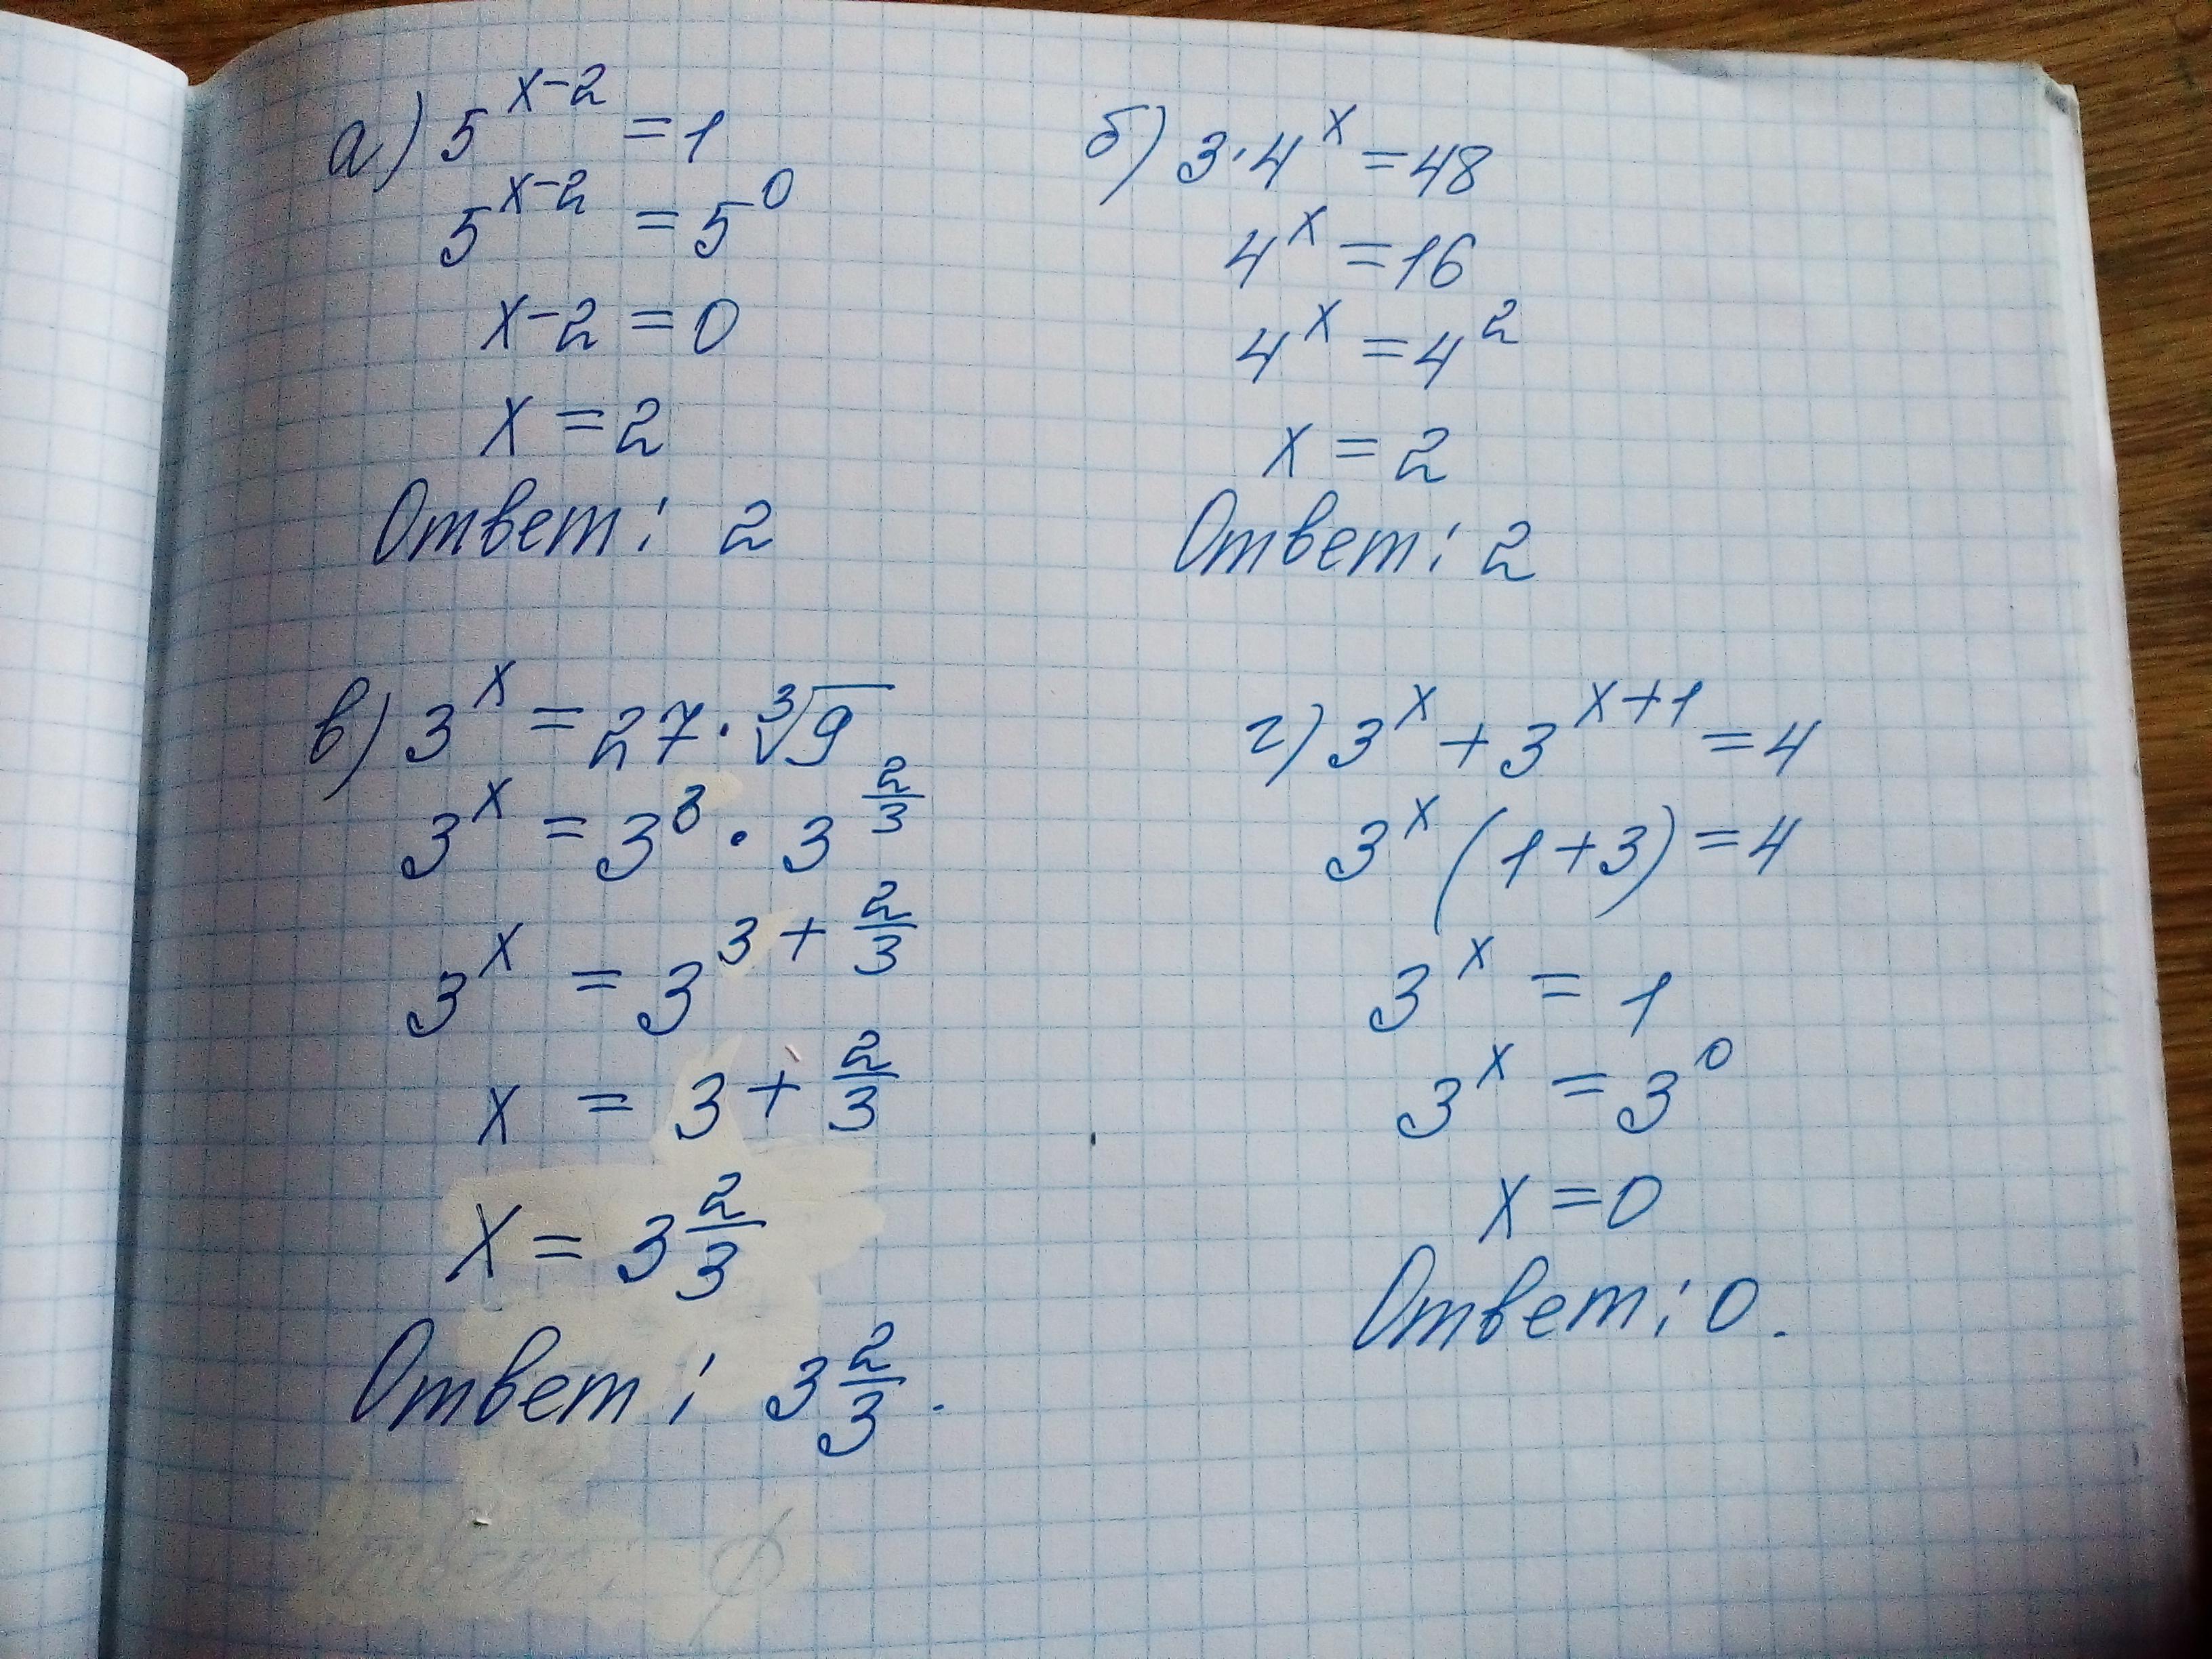 а) 5^(x-2) = 1
5^(x-2) = 5^0
x-2 = 0
x = 2
Ответ: 2
б) 3·4^x = 48
4^x = 16
4^x = 4^2
x = 2
Ответ: 2
в) 3^x = 27·∛9
3^x = 3^3 · 3^(2/3)
3^x = 3^(3 + 2/3)
x = 3 + 2/3
x = 3 2/3
Ответ: 3 2/3.
г) 3^x + 3^(x+1) = 4
3^x (1+3) = 4
3^x = 1
3^x = 3^0
x = 0
Ответ: 0.